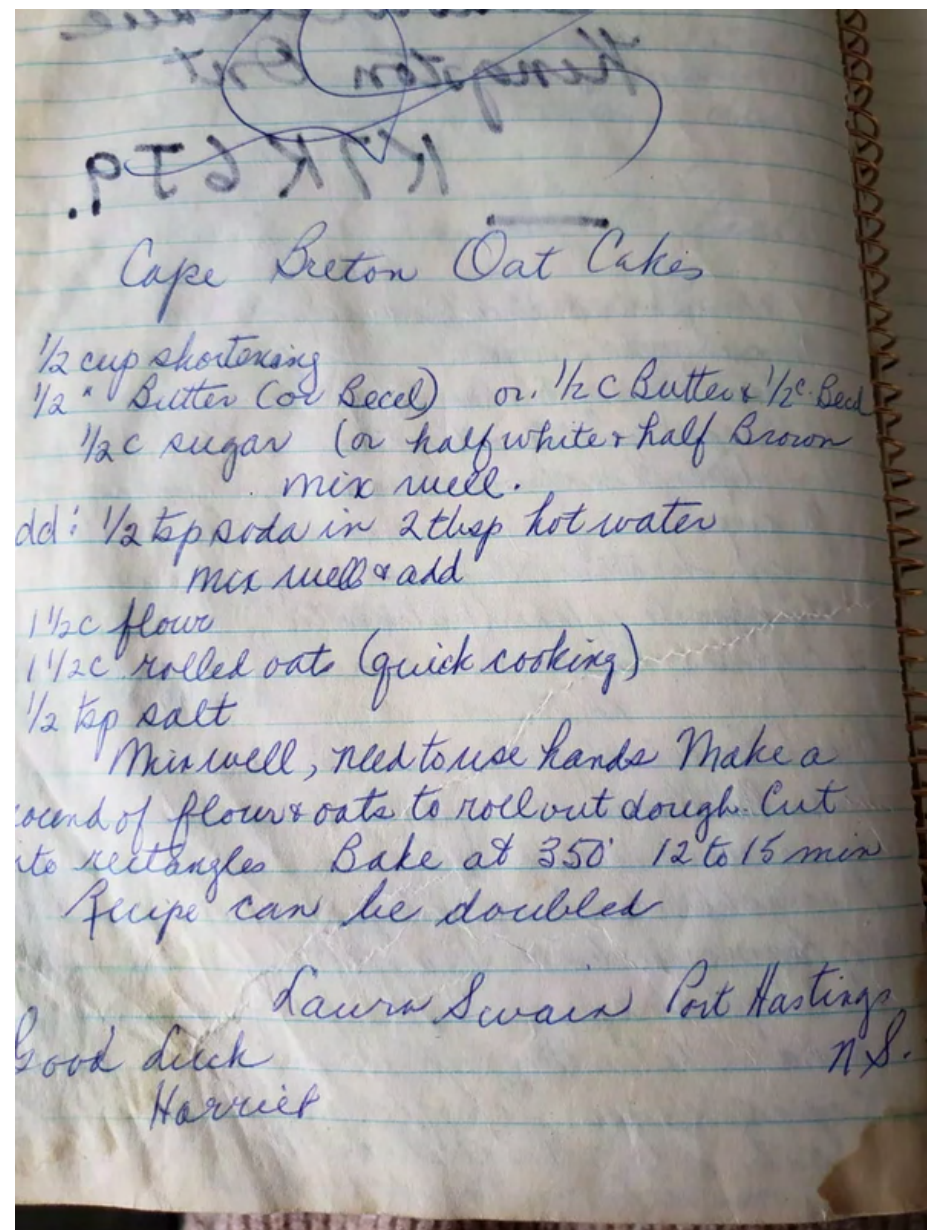 Kingston Ont
K7K 6J9.
Cape Breton Oat Cakes
1/2 cup shortening
1/2 " Butter (or Becel) or 1/2 C Butter & 1/2 C. Becel
1/2 C sugar (or half white & half Brown
mix well.
dd: 1/2 tsp soda in 2 tbsp hot water
mix well & add
1 1/2 C flour
1 1/2 C rolled oats (quick cooking)
1/2 tsp salt
Mix well, need to use hands Make a
ound of flour & oats to roll out dough. Cut
nto rectangles Bake at 350° 12 to 15 min
Recipe can be doubled
Laura Swain Port Hastings
N.S.
Good Luck
Harriet